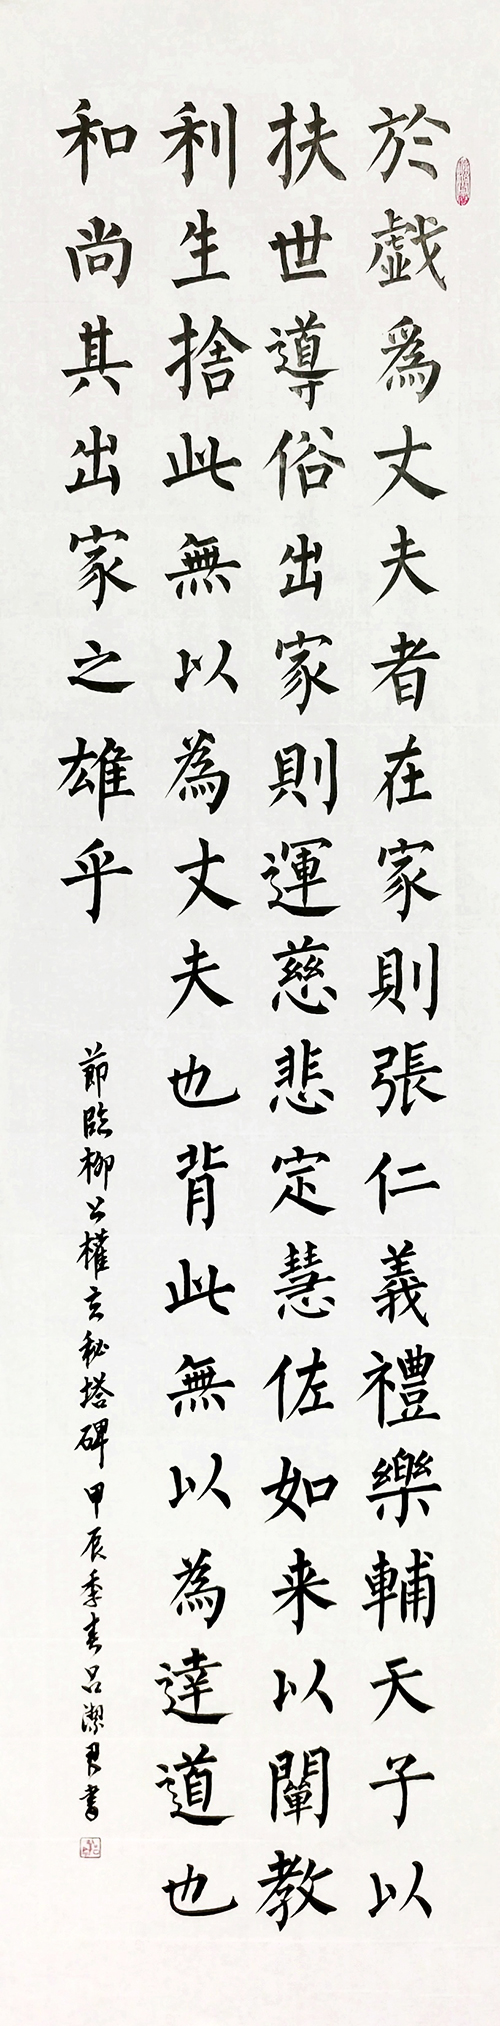 於戲為丈夫者在家則張仁義禮樂輔天子以
扶世導俗出家則運慈悲定慧佐如来以闡教
利生捨此無以為丈夫也背此無以為達道也
和尚其出家之雄乎
節臨柳公權玄秘塔碑甲辰季春呂潔君書